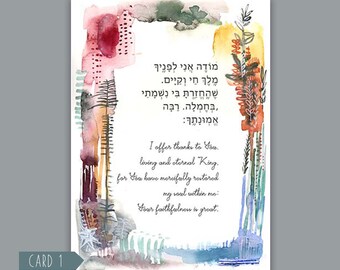 מוֹדָה אֲנִי לְפָנֶיךָ
מֶלֶךְ חַי וְקַיָּים.
שֶׁהֶחֱזַרְתָּ בִּי נִשְׁמָתִי
בְּחֶמְלָה. רַבָּה,
אֱמוּנָתֶךָ:
I offer thanks to You,
living and eternal King,
for You have mercifully restored
my soul within me:
Your faithfulness is great.
CARD 1